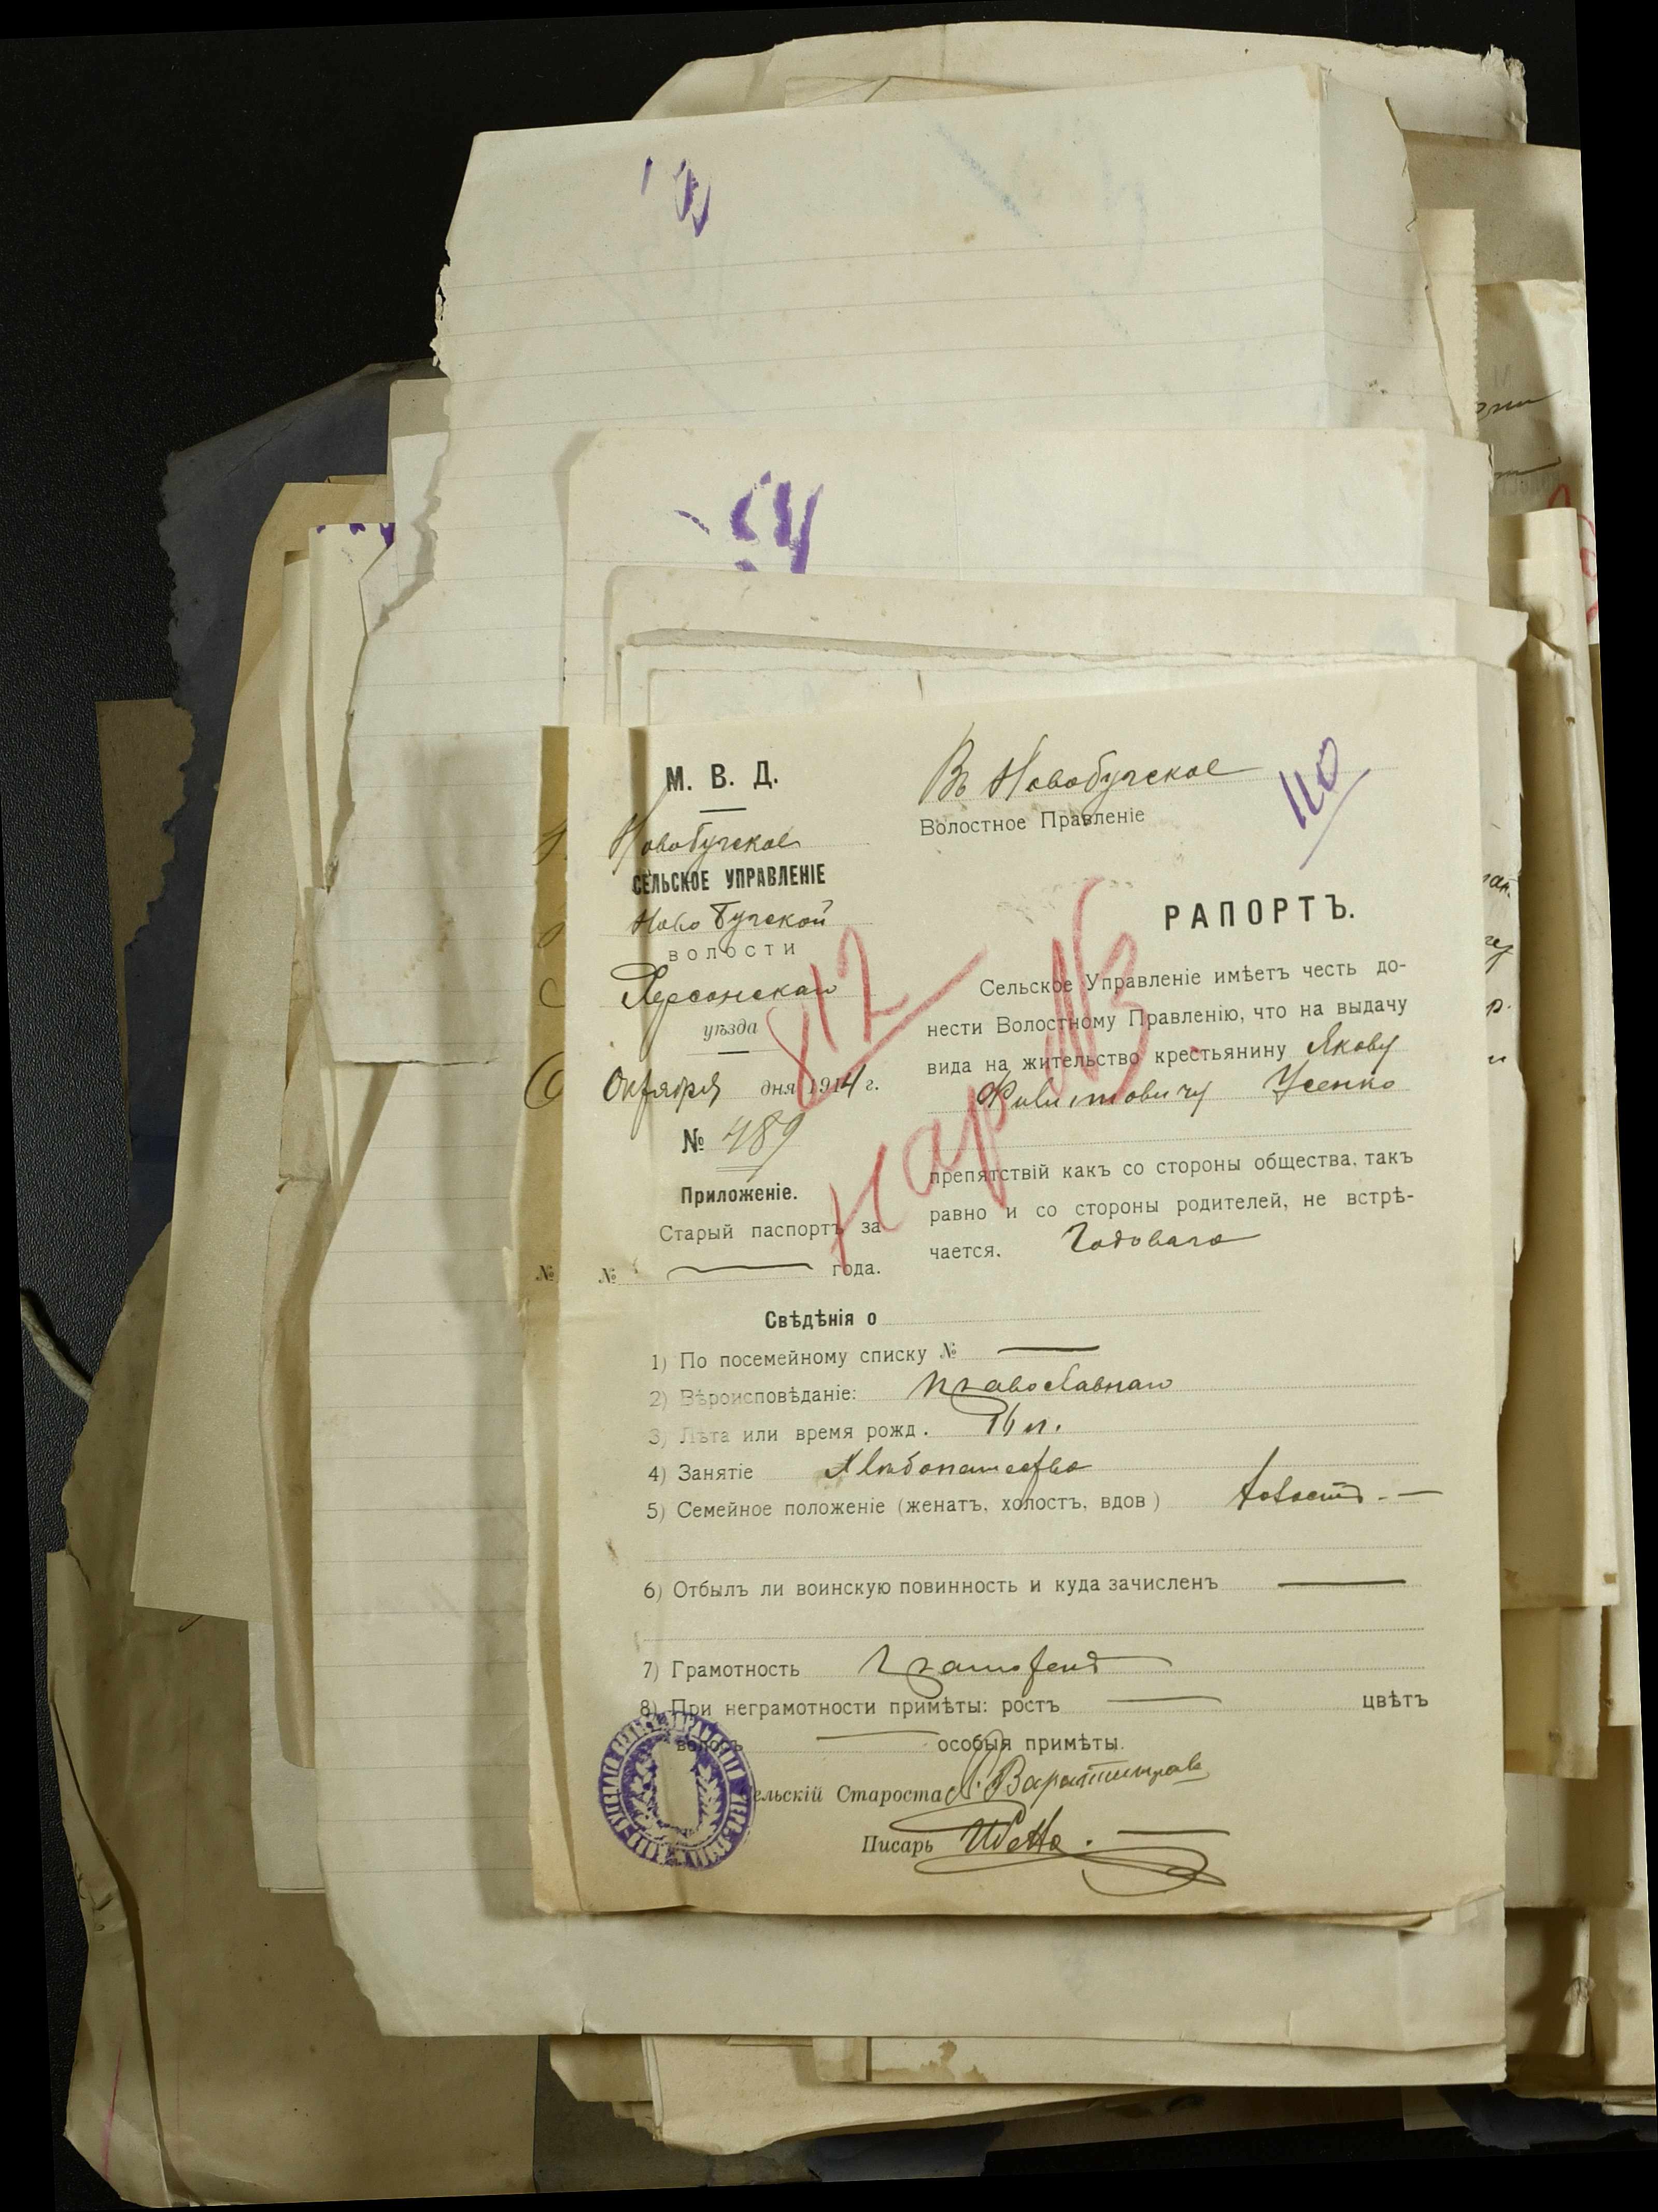 М. В. Д.
Новобугское
СЕЛЬСКОЕ УПРАВЛЕНІЕ
Новобугской
волости
Херсонскаго
уѣзда
Октября дня 1914 г.
№ 489
Приложеніе.
Старый паспортъ за
№ года.
Въ Новобугское
Волостное Правленіе
110
РАПОРТЪ.
Сельское Управленіе имѣетъ честь до-
нести Волостному Правленію, что на выдачу
вида на жительство крестьянину Якову
Усенко
препятствій какъ со стороны общества, такъ
равно и со стороны родителей, не встрѣ-
чается. Годоваго
812
Свѣдѣнія о
1) По посемейному списку №
2) Вѣроисповѣданіе: православнаго
3) Лѣта или время рожд. 16 л.
4) Занятіе Хлѣбопашество
5) Семейное положеніе (женатъ, холостъ, вдов) холостъ
6) Отбылъ ли воинскую повинность и куда зачисленъ
7) Грамотность Грамотенъ
8) При неграмотности примѣты: ростъ цвѣтъ
волосъ особыя примѣты.
ельскій Староста
Писарь